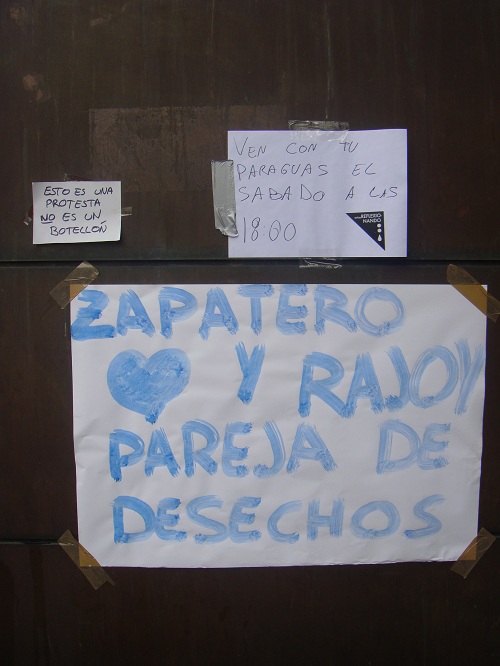 ESTO ES UNA
PROTESTA
NO ES UN
BOTELLÓN
VEN CON TU
PARAGUAS EL
SABADO A LAS
18:00
REFLEXIO
NANDO
ZAPATERO
Y RAJOY
PAREJA DE
DESECHOS